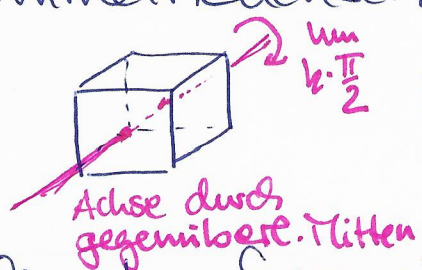 um
k·π/2
Achse durch
gegenüberl. Mitten